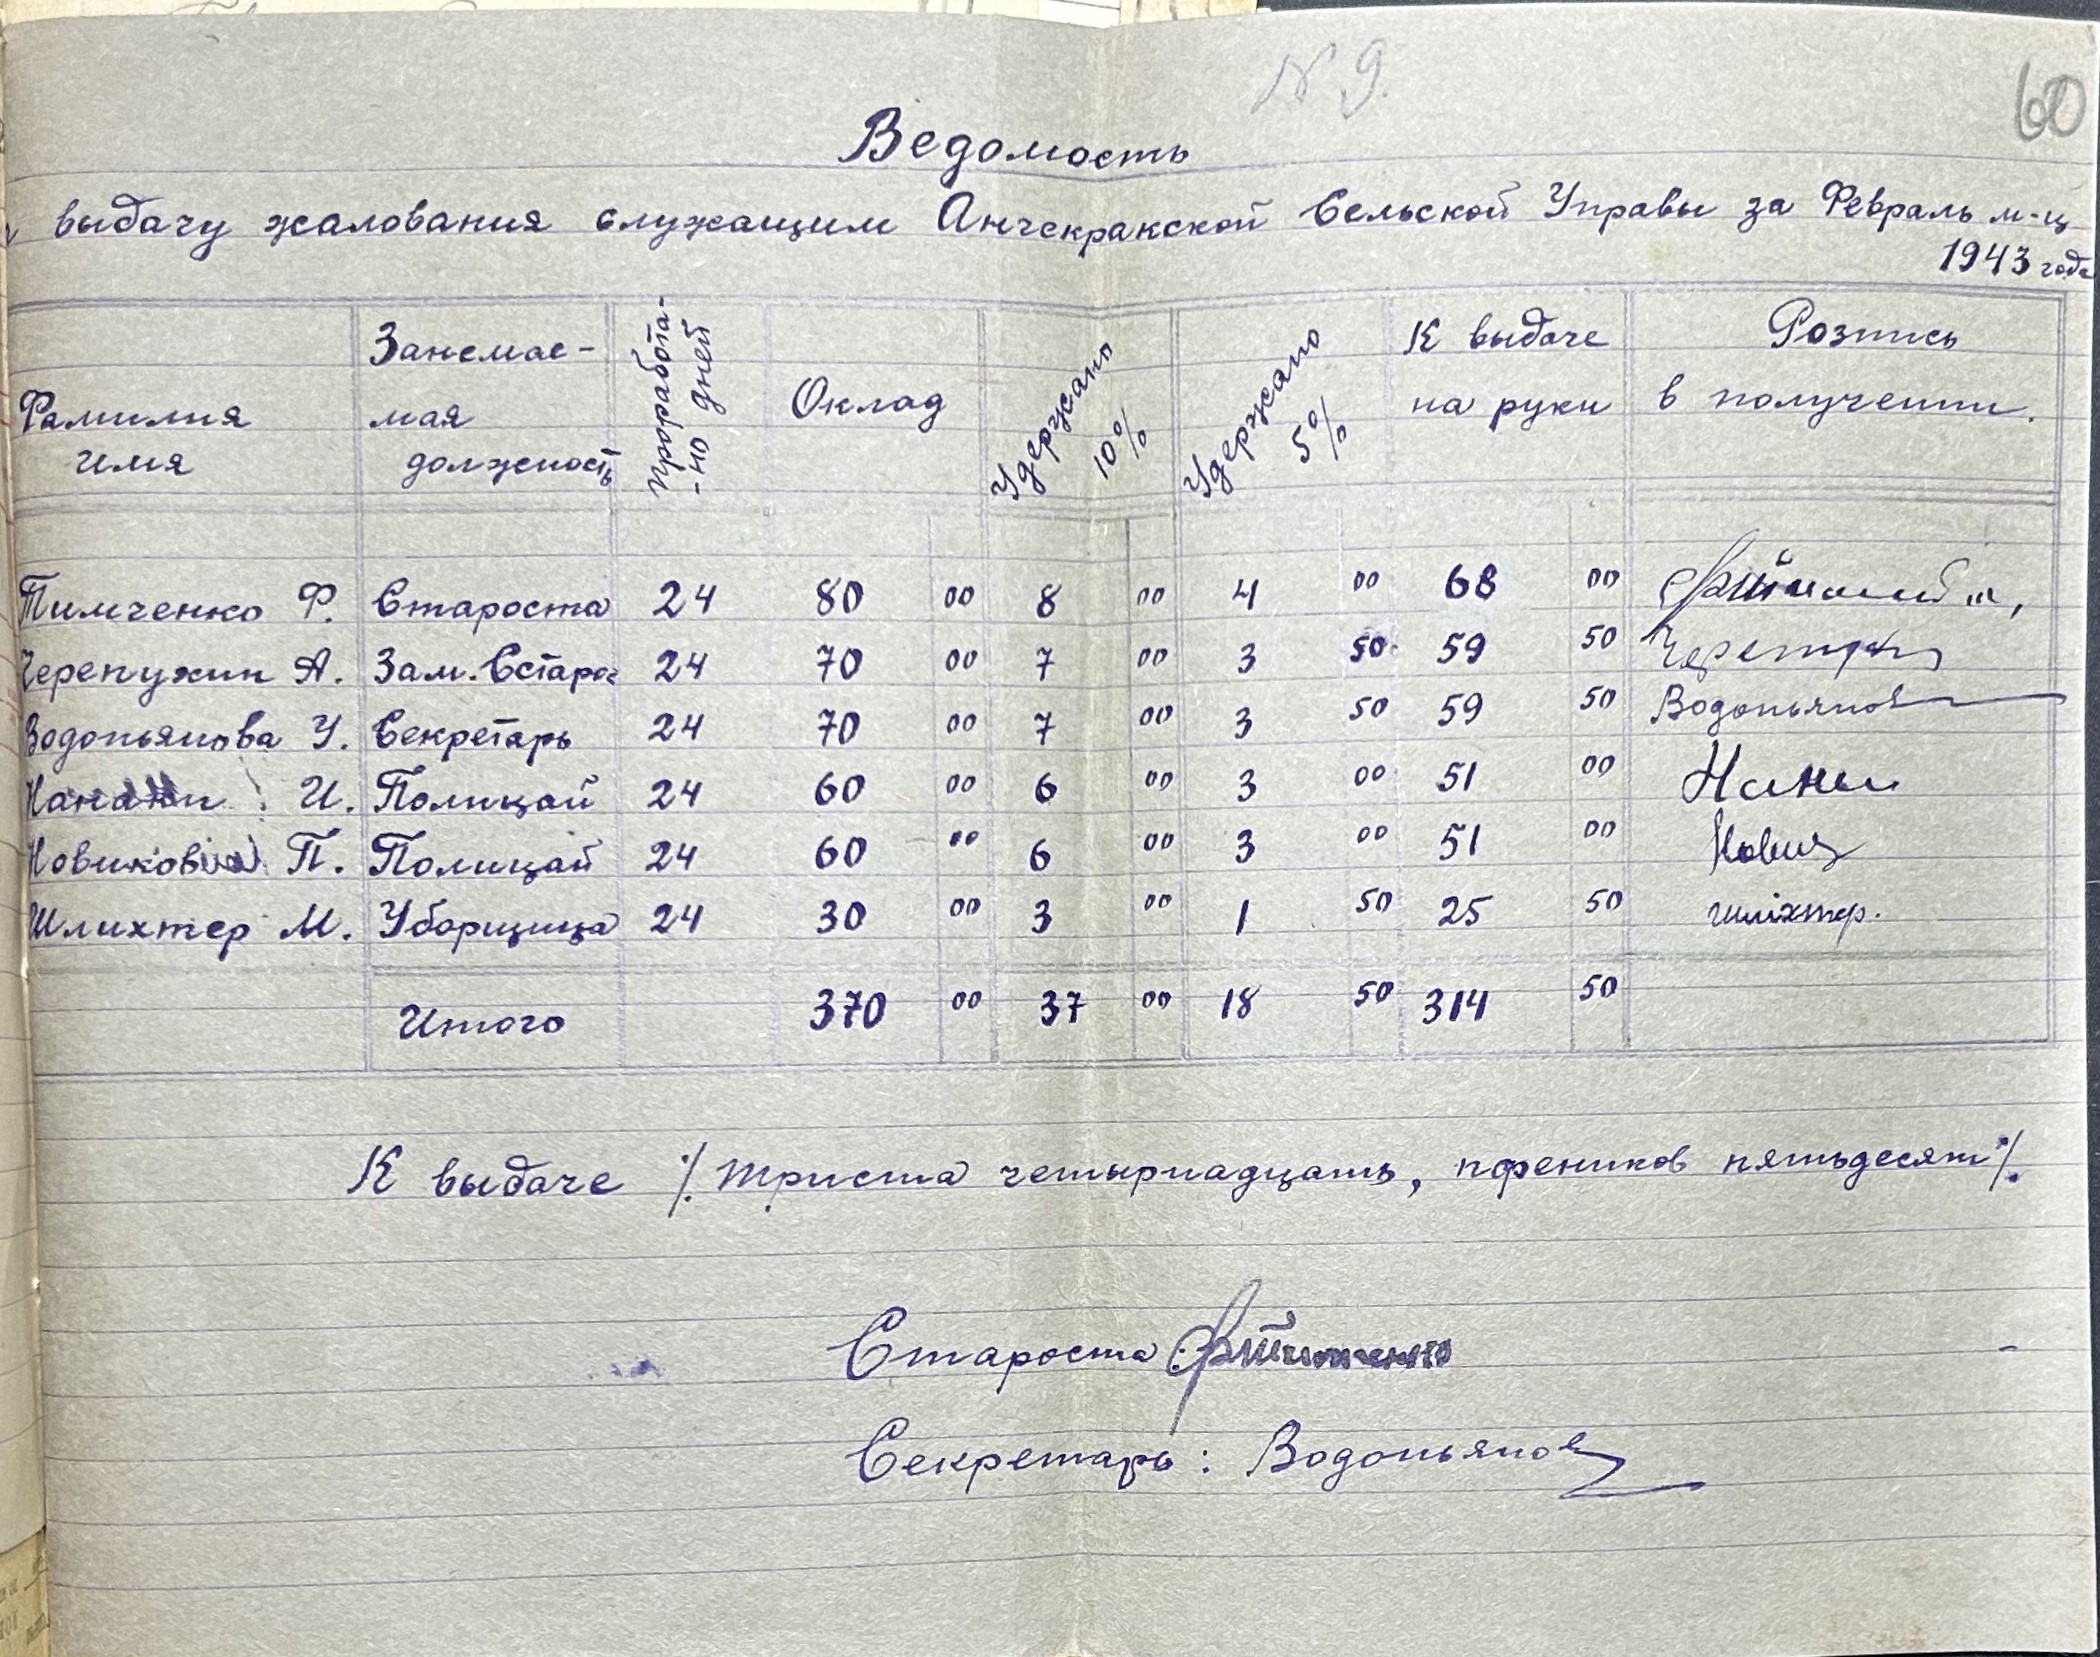 N 9.
60
Ведомость
выдачу жалования служащим Анчекракской Сельской Управы за Февраль м-ц
1943 года
Фамилия Имя Занемае-мая должность Проработа-но дней Оклад Удержано 10% Удержано 5% К выдаче на руки Розпись в получении.
Тимченко Ф. Староста 24 80 00 8 00 4 00 68 00
Черепухин А. Зам. Старос 24 70 00 7 00 3 50 59 50
Водопьянова У. Секретарь 24 70 00 7 00 3 50 59 50 Водопьянова
И. Полицай 24 60 00 6 00 3 00 51 00 Нани
Новиков П. Полицай 24 60 00 6 00 3 00 51 00 Новик
Шлихтер М. Уборщица 24 30 00 3 00 1 50 25 50 шліхтер.
Итого 370 00 37 00 18 50 314 50
К выдаче ·/. триста четырнадцать, пфеников пятьдесят ·/.
Староста: ФТимченко
Секретарь: Водопьянов